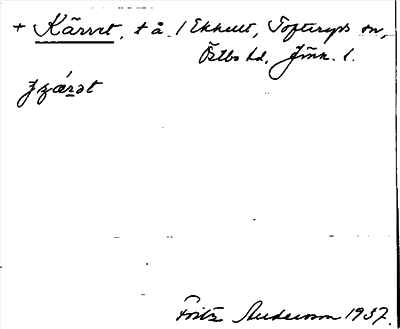 + Kärret, t å. 1 Ekhult, Tofteryds sn,
Östbo hd, Jönk. l.
Fritz Andersson 1937.